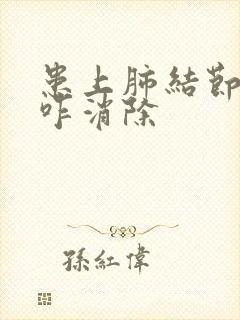 患上肺結節
咋消除
孫紅偉